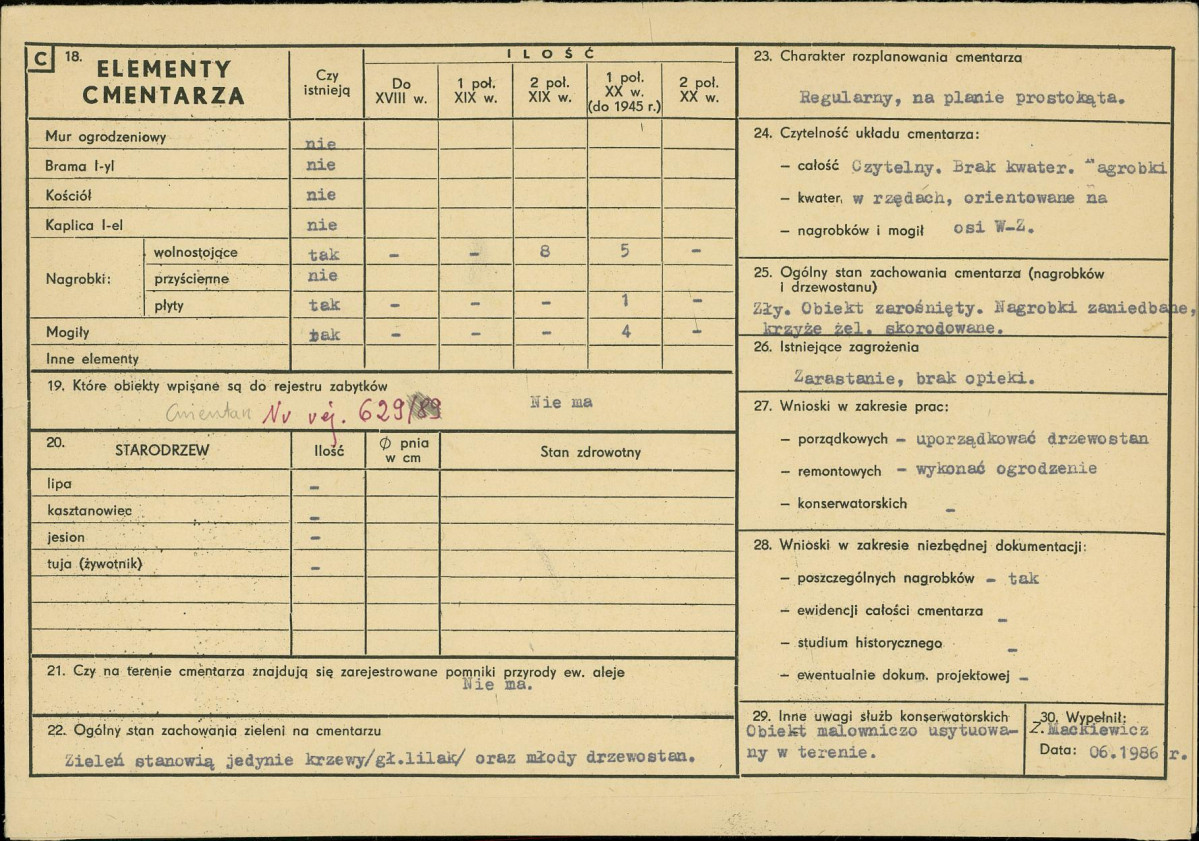 C 18. ELEMENTY CMENTARZA
Czy istnieją
ILOŚĆ
Do XVIII w.
1 poł. XIX w.
2 poł. XIX w.
1 poł. XX w. (do 1945 r.)
2 poł. XX w.
Mur ogrodzeniowy nie
Brama I-yl nie
Kościół nie
Kaplica I-el nie
Nagrobki:
wolnostojące tak - - 8 5 -
przyścienne nie
płyty tak - - - 1 -
Mogiły tak - - - 4 -
Inne elementy
19. Które obiekty wpisane są do rejestru zabytków
Nie ma
Cmentarz Nr rej. 629/89
20. STARODRZEW
Ilość
Ø pnia w cm
Stan zdrowotny
lipa -
kasztanowiec -
jesion -
tuja (żywotnik) -
21. Czy na terenie cmentarza znajdują się zarejestrowane pomniki przyrody ew. aleje
Nie ma.
22. Ogólny stan zachowania zieleni na cmentarzu
Zieleń stanowią jedynie krzewy/gł.lilak/ oraz młody drzewostan.
23. Charakter rozplanowania cmentarza
Regularny, na planie prostokąta.
24. Czytelność układu cmentarza:
– całość Czytelny. Brak kwater. Nagrobki
– kwater, w rzędach, orientowane na
– nagrobków i mogił osi W-Z.
25. Ogólny stan zachowania cmentarza (nagrobków
i drzewostanu)
Zły. Obiekt zarośnięty. Nagrobki zaniedbane,
krzyże żel. skorodowane.
26. Istniejące zagrożenia
Zarastanie, brak opieki.
27. Wnioski w zakresie prac:
– porządkowych - uporządkować drzewostan
– remontowych - wykonać ogrodzenie
– konserwatorskich -
28. Wnioski w zakresie niezbędnej dokumentacji:
– poszczególnych nagrobków - tak
– ewidencji całości cmentarza -
– studium historycznego -
– ewentualnie dokum. projektowej -
29. Inne uwagi służb konserwatorskich
Obiekt malowniczo usytuowa-
ny w terenie.
30. Wypełnił:
Z. Mackiewicz
Data: 06.1986 r.